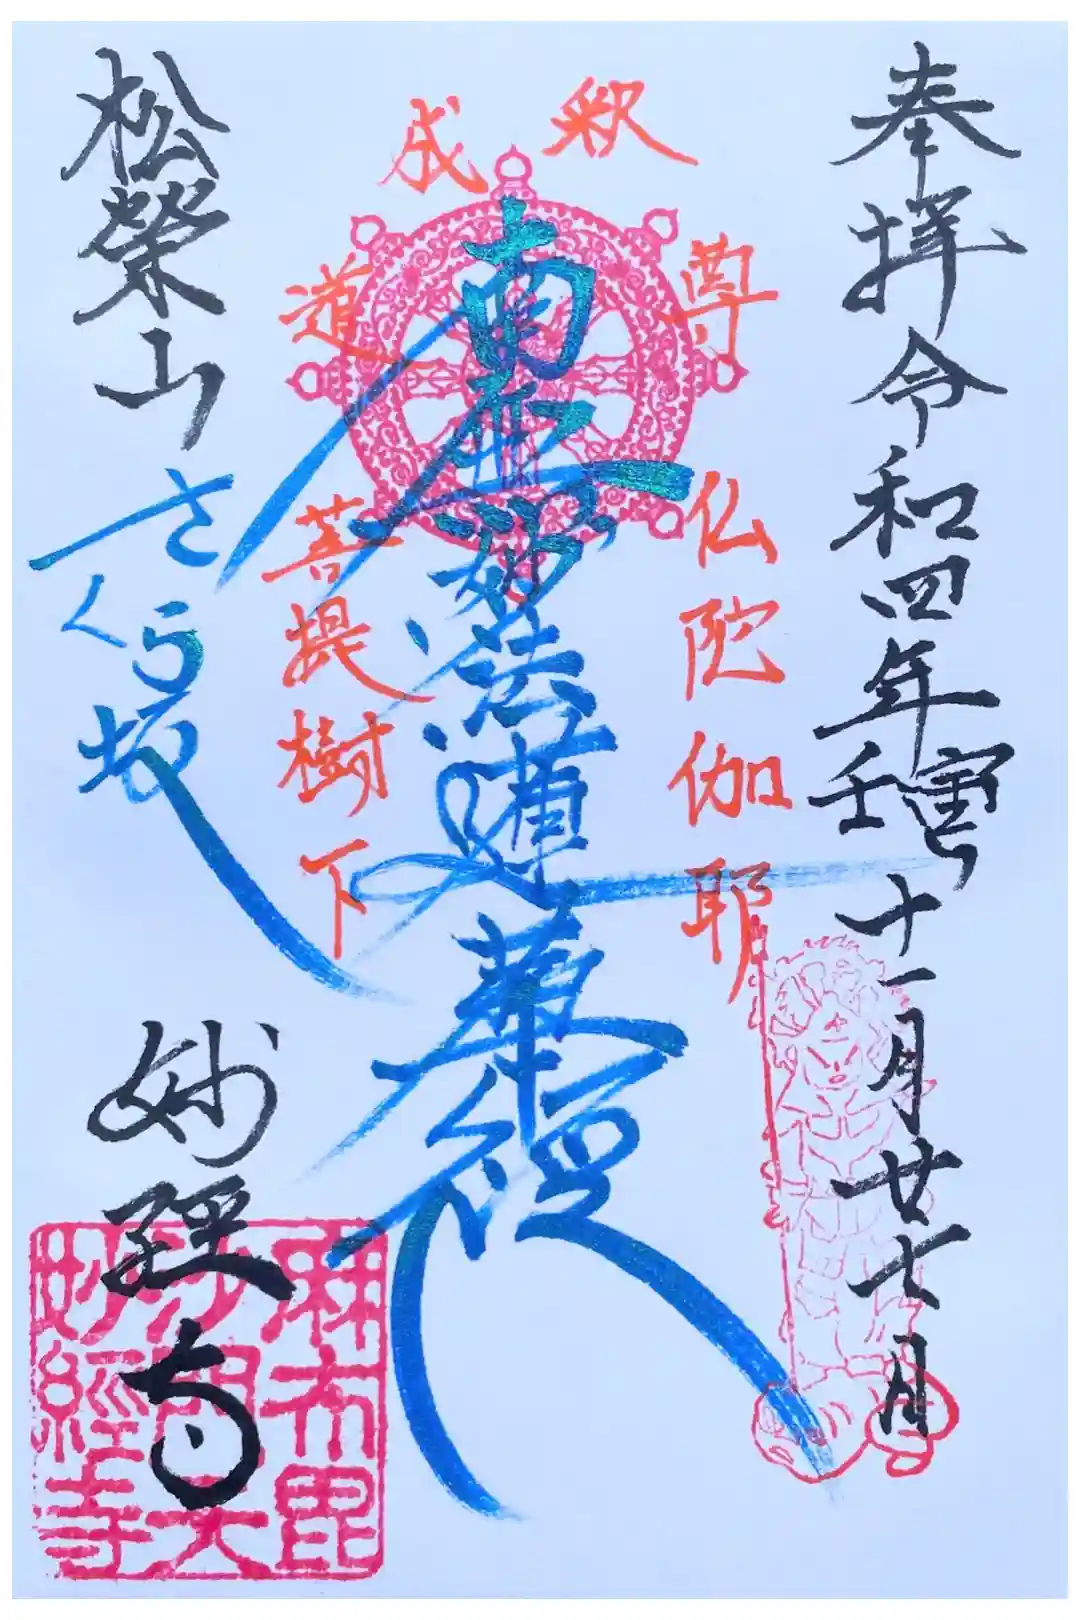 奉拝 令和四年壬寅十一月廿七日
釈尊 仏陀伽耶
南無妙法蓮華経
成道 菩提樹下
松榮山
さくら坂
妙経寺
麻布毘
沙門天
妙經寺